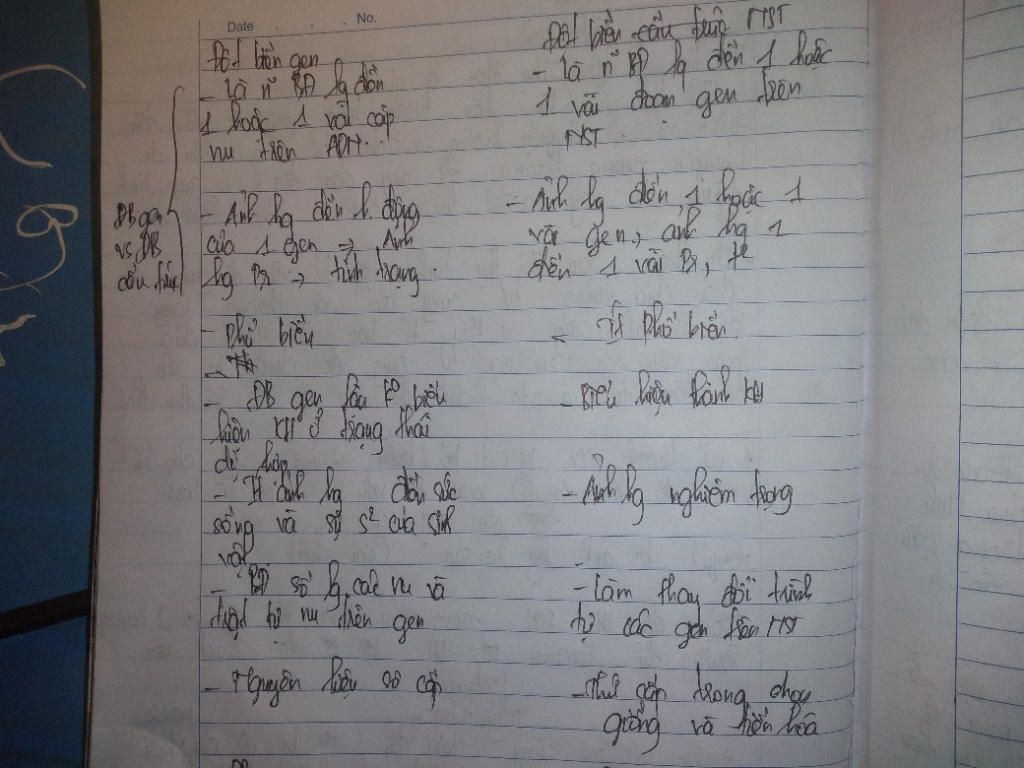 Date . . . . No.
Đột biến gen
- là n~ BĐ lq đến
1 hoặc 1 vài cặp
nu trên ADN.
Đột biến cấu trúc NST
- là n~ BĐ lq đến 1 hoặc
1 vài đoạn gen trên
NST
ĐB gen
vs ĐB
cấu trúc
- Ảnh hg đến h. động
của 1 gen => Ảnh
hg Pr -> tính trạng.
- Ảnh hg đến 1 hoặc 1
vài gen, ảnh hg
đến 1 vài Pr, tt
- Phổ biến
- Ít phổ biến.
- ĐB gen lặn biểu
hiện KH ở trạng thái
dị hợp
- Biểu hiện thành KH
- Ít ảnh hg đến sức
sống và sự s² của sinh
vật
- Ảnh hg nghiêm trọng
- BĐ số lg các nu và
trật tự nu trên gen
- Làm thay đổi trình
tự các gen trên NST
- Nguyên liệu sơ cấp
- Thứ cấp trong chọn
giống và tiến hóa